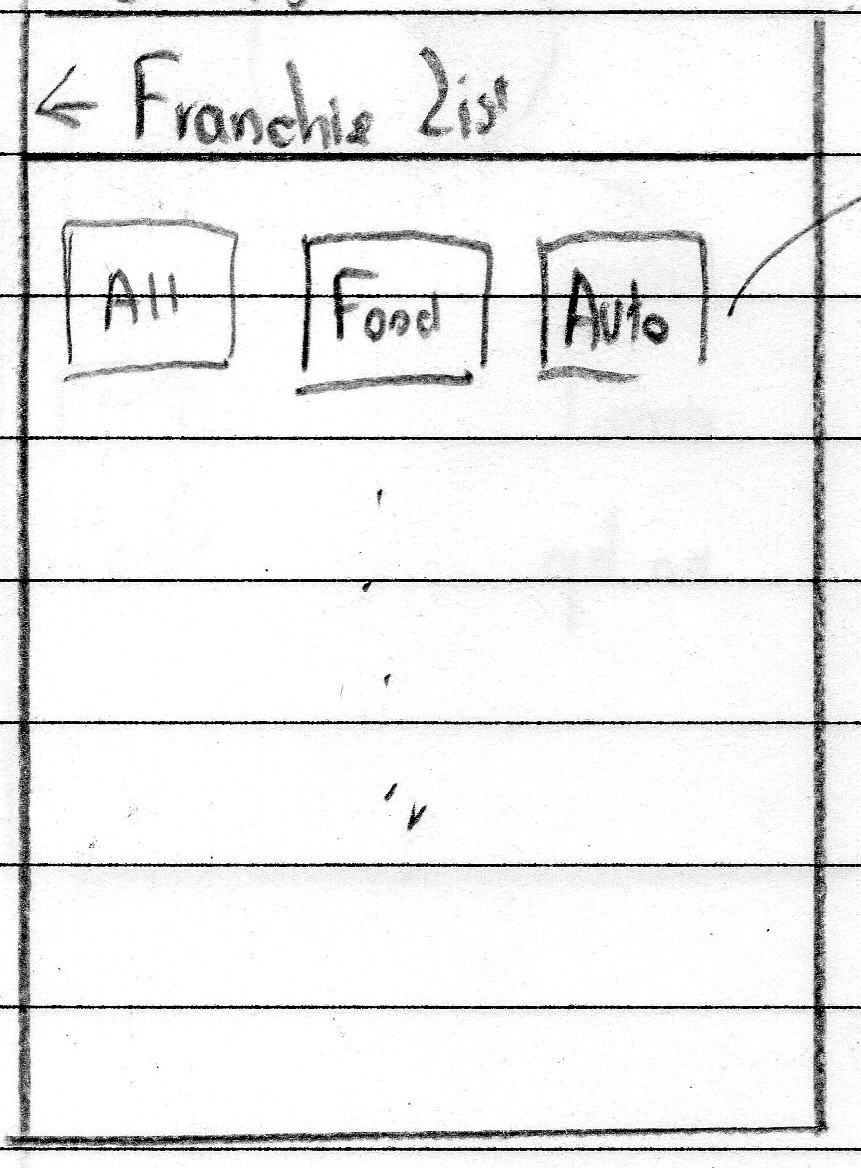 ← Franchie List
All Food Auto